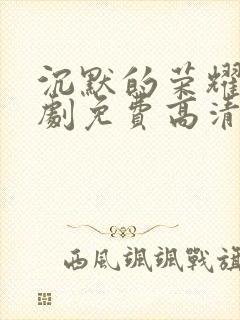 沉默的荣耀
劇免费高清
西風颯颯戰旗